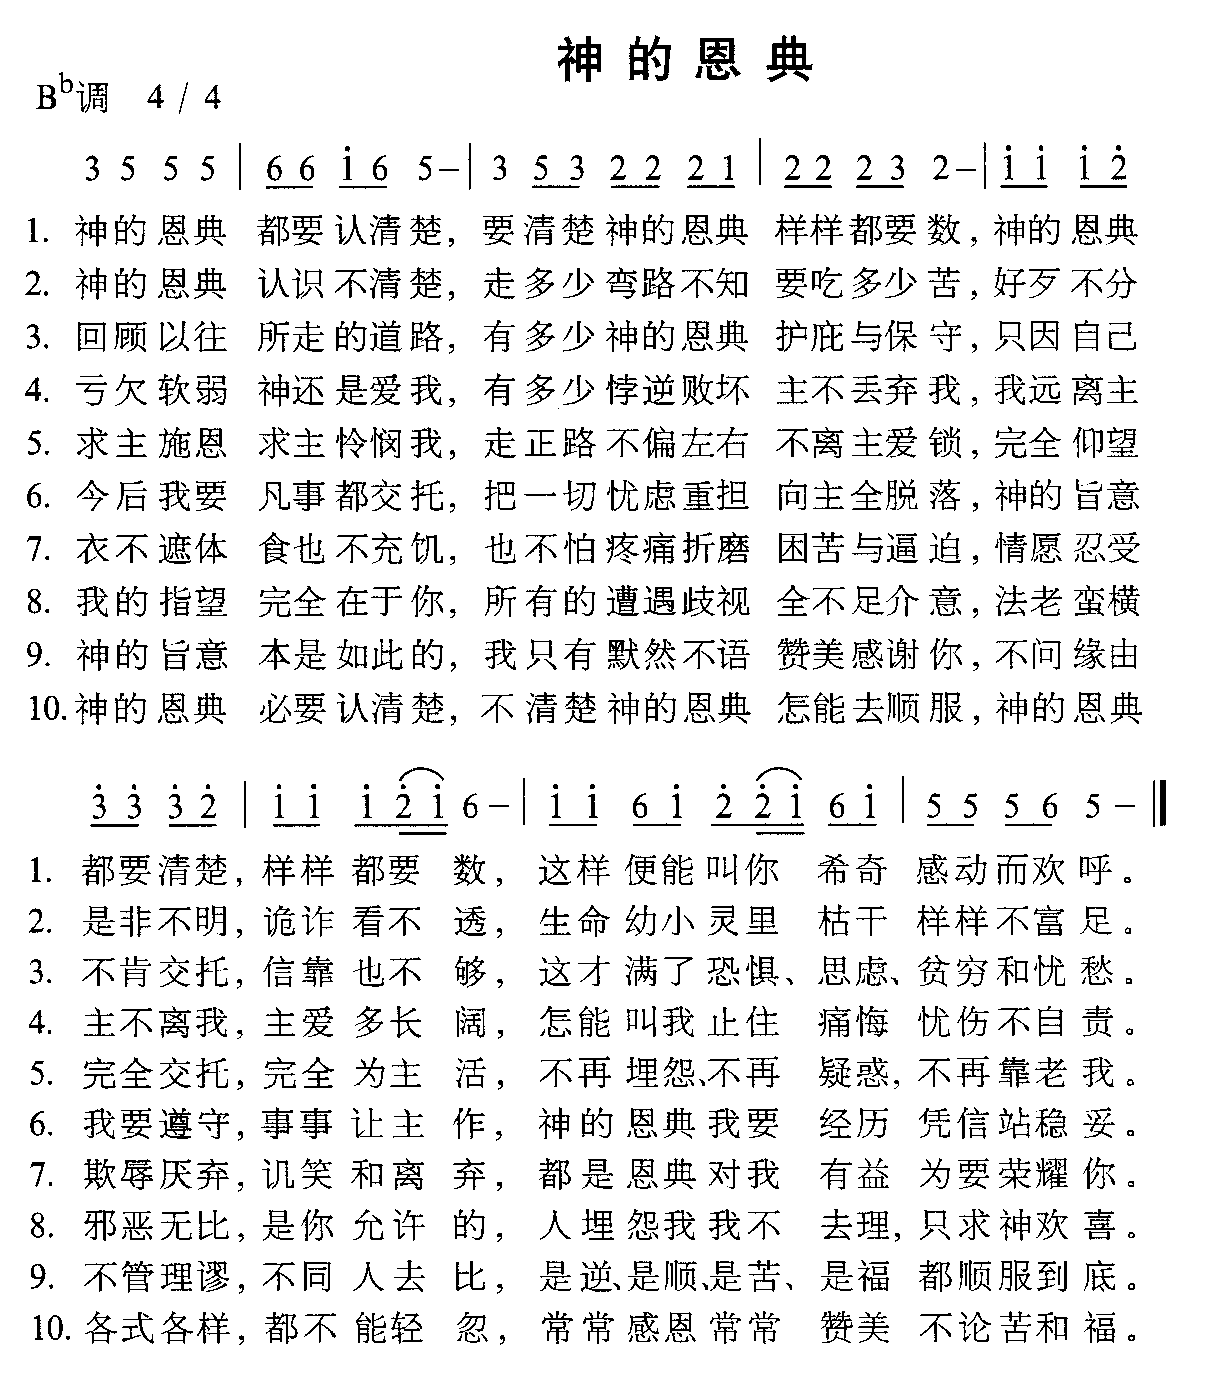 神的恩典
Bb调 4 / 4
3 5 5 5 | 6 6 i 6 5 – | 3 5 3 2 2 2 1 | 2 2 2 3 2 – | i i i 2̇
1. 神的恩典 都要认清楚，要清楚神的恩典 样样都要数，神的恩典
2. 神的恩典 认识不清楚，走多少弯路不知 要吃多少苦，好歹不分
3. 回顾以往 所走的道路，有多少神的恩典 护庇与保守，只因自己
4. 亏欠软弱 神还是爱我，有多少悖逆败坏 主不丢弃我，我远离主
5. 求主施恩 求主怜悯我，走正路不偏左右 不离主爱锁，完全仰望
6. 今后我要 凡事都交托，把一切忧虑重担 向主全脱落，神的旨意
7. 衣不遮体 食也不充饥，也不怕疼痛折磨 困苦与逼迫，情愿忍受
8. 我的指望 完全在于你，所有的遭遇歧视 全不足介意，法老蛮横
9. 神的旨意 本是如此的，我只有默然不语 赞美感谢你，不问缘由
10. 神的恩典 必要认清楚，不清楚神的恩典 怎能去顺服，神的恩典
3̇ 3̇ 3̇ 2̇ | i i i 2̇ i 6 – | i i 6 i 2̇ 2̇ i 6 i | 5 5 5 6 5 – ‖
1. 都要清楚，样样都要 数，这样便能叫你 希奇 感动而欢呼。
2. 是非不明，诡诈看不 透，生命幼小灵里 枯干 样样不富足。
3. 不肯交托，信靠也不 够，这才满了恐惧、思虑、贫穷和忧愁。
4. 主不离我，主爱多长 阔，怎能叫我止住 痛悔 忧伤不自责。
5. 完全交托，完全为主 活，不再埋怨、不再 疑惑，不再靠老我。
6. 我要遵守，事事让主 作，神的恩典我要 经历 凭信站稳妥。
7. 欺辱厌弃，讥笑和离 弃，都是恩典对我 有益 为要荣耀你。
8. 邪恶无比，是你允许 的，人埋怨我我不 去理，只求神欢喜。
9. 不管理谬，不同人去 比，是逆、是顺、是苦、是福 都顺服到底。
10. 各式各样，都不能轻 忽，常常感恩常常 赞美 不论苦和福。